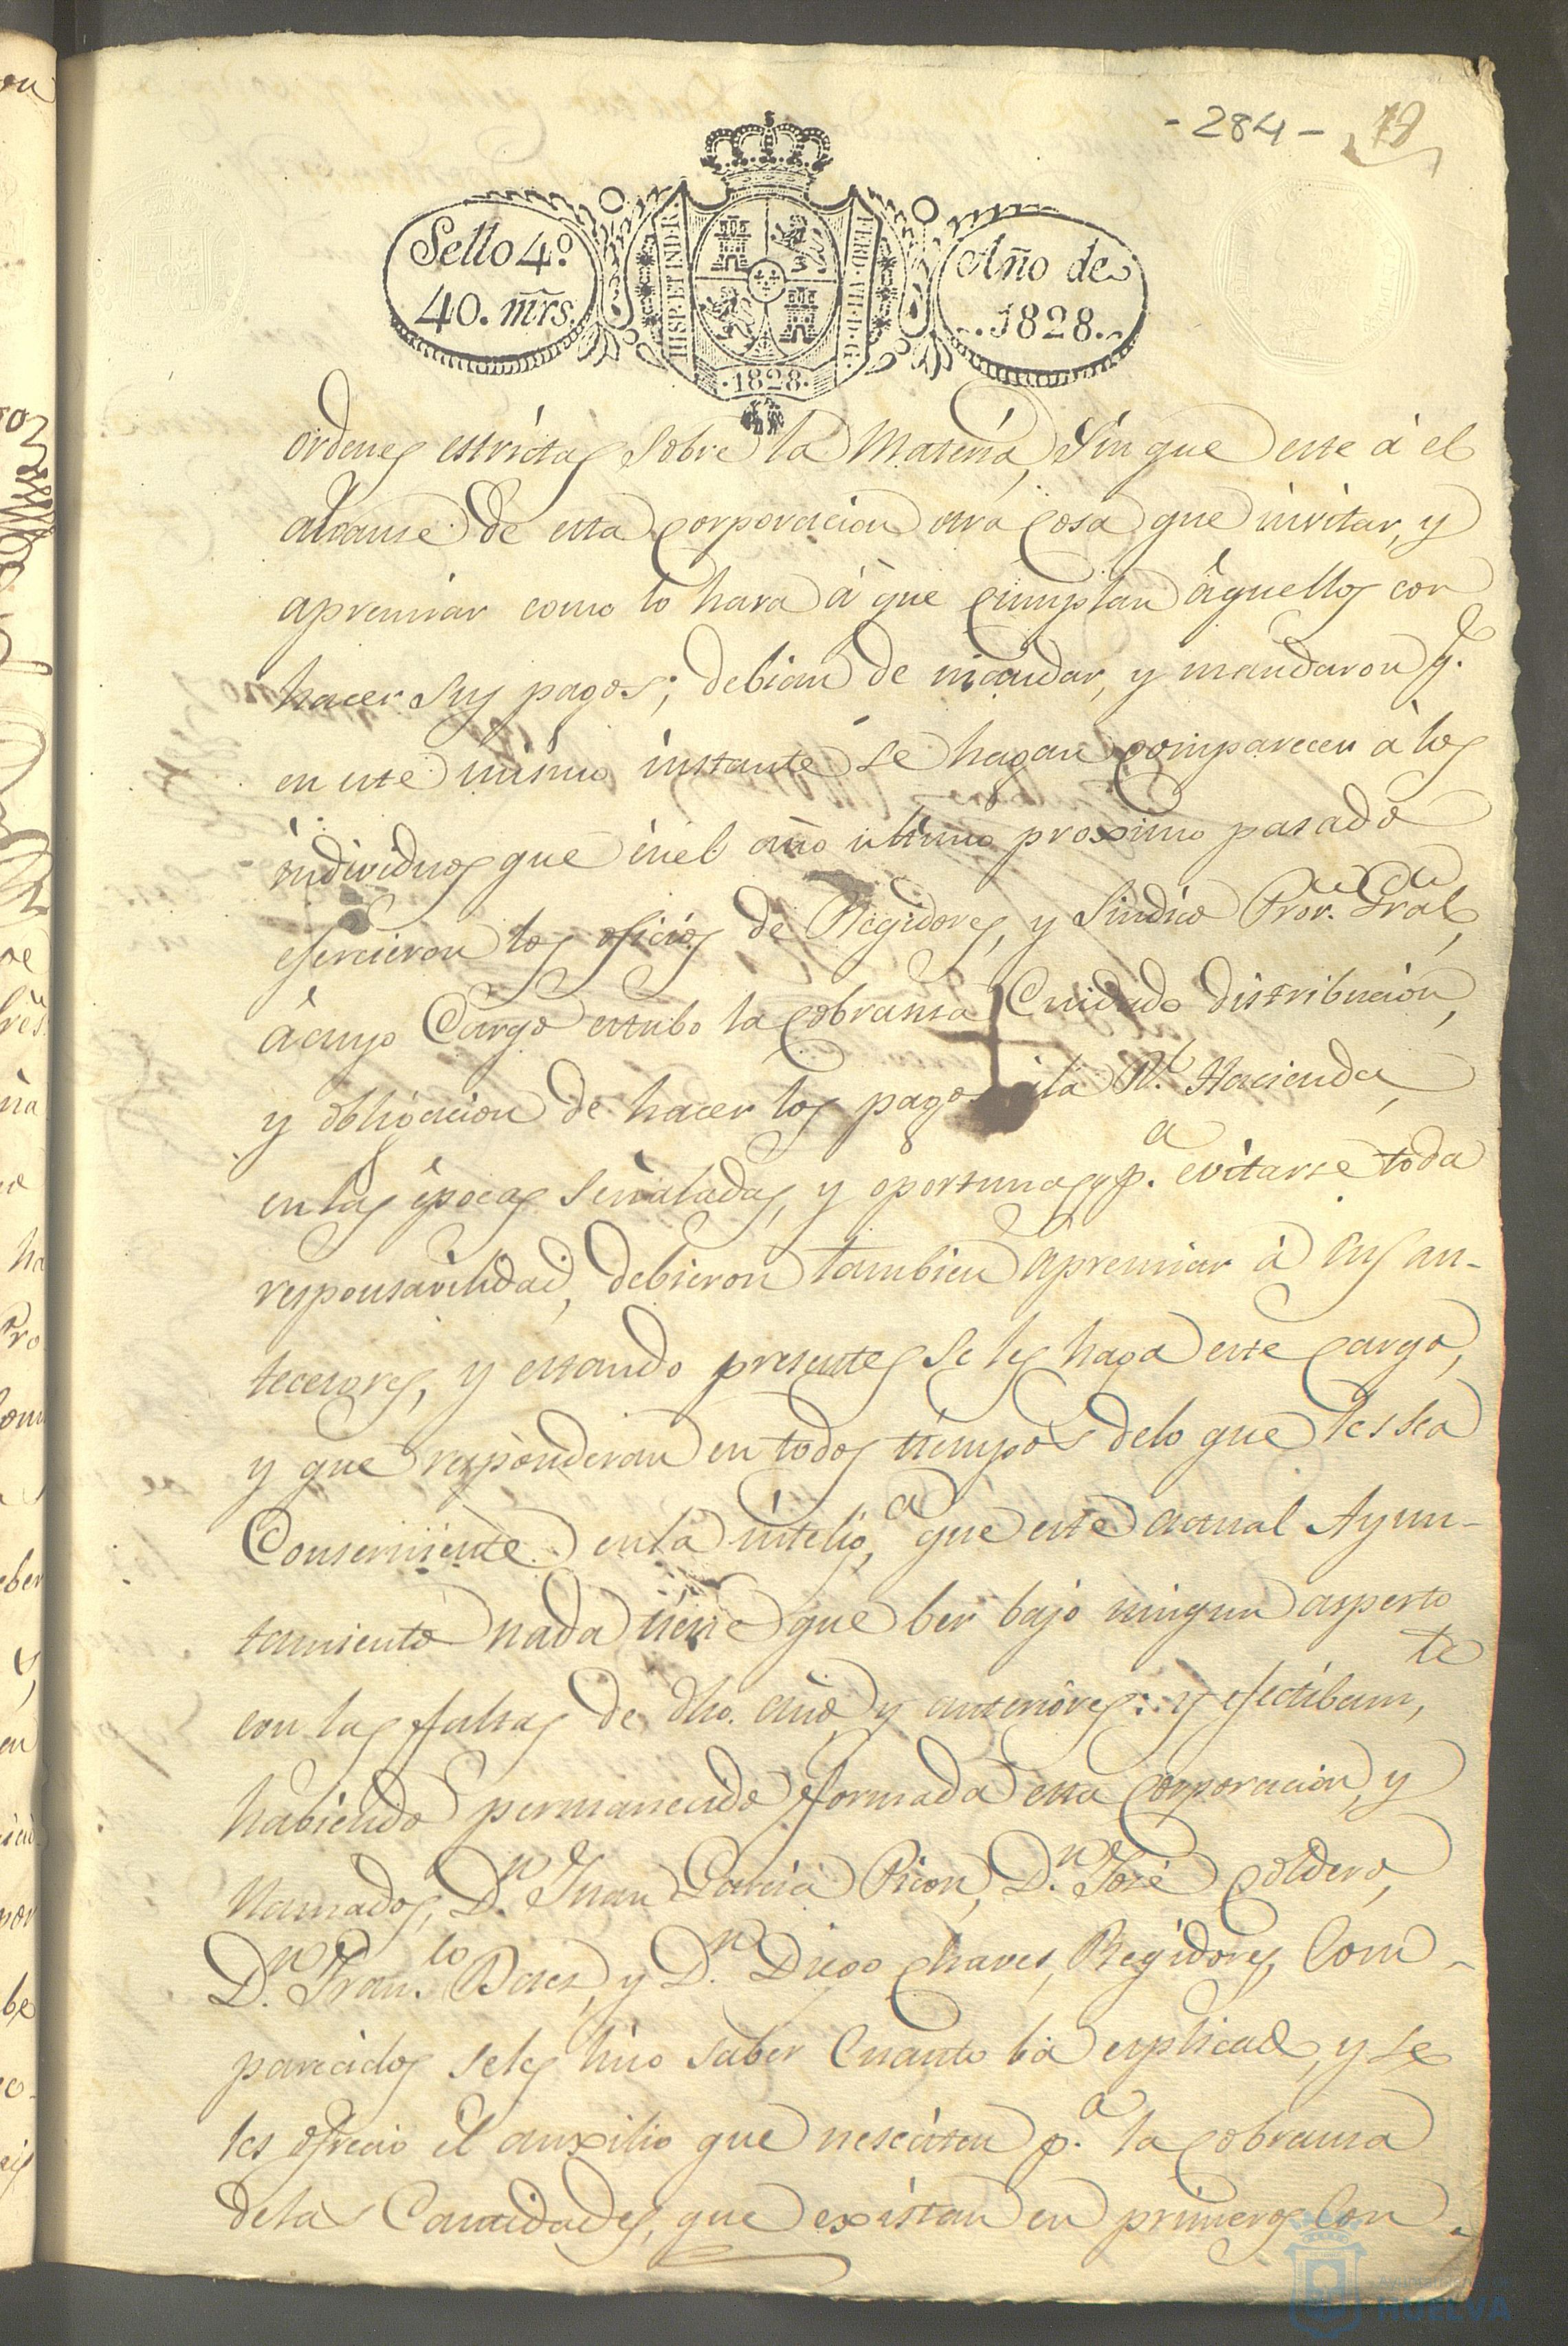 - 284 - 19
Sello 4.º
40. mrs.
HISP. ET IND. R.
FERD. VII. D. G.
Año de
1828.
·1828·
ordenes estrictas sobre la Materia, sin que este á el
alcanse de esta corporacion otra cosa que invitar, y
apremiar como lo hara á que cumplan aquellos con
hacer sus pagos; debian de mandar, y mandaron q.e
en este mismo instante se hagan comparecer á los
individuos que en el año ultimo proximo pasado
ejercieron los oficios de Regidores, y Sindico Pror. Gral,
á cuyo Cargo estubo la cobransa Cuidado distribucion,
y obligacion de hacer los pagos á la R.l Hacienda,
en las épocas señaladas, y oportunas, y p.a evitarse toda
responsavilidad, debieron tambien apremiar á sus an-
tecesores, y estando presentes se les haga este cargo,
y que responderan en todos tiempos de lo que les sea
Conserniente en la intelig.a que este actual Ayun-
tamiento nada tiene que ber bajo ningun aspecto
con las faltas de dho. año, y anteriores: y efectibam.te
habiendo permanecido formada esta Corporacion, y
llamados, D.n Juan Garcia Picon, D.n José Coldero,
D.n Fran.co Baes, y D.n Diego Chaves, Regidores, Com-
parecidos se les hiso saber Cuanto ba esplicado, y se
les ofrecio el auxilio que nesesiten p.a la cobransa
de las Cantidades, que existan en primeros Con-
HUELVA